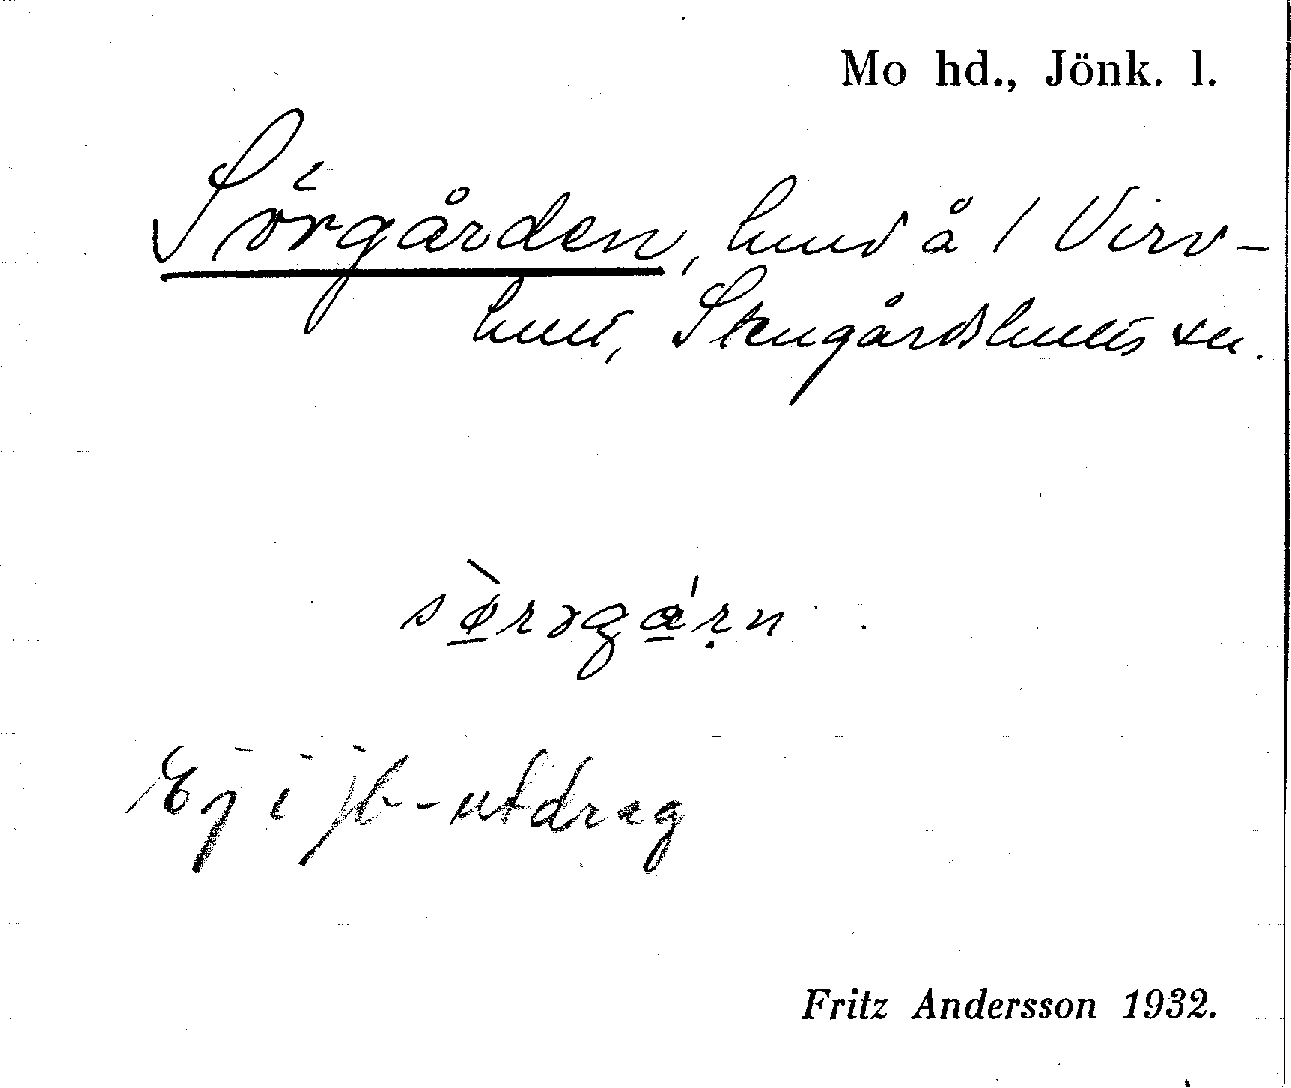 Mo hd., Jönk. l.
Sörgården, hmd å 1 Virv-
hult, Stengårdshults sn.
sø̀rəgɑ́ṛn
Ej i jb-utdrag
Fritz Andersson 1932.